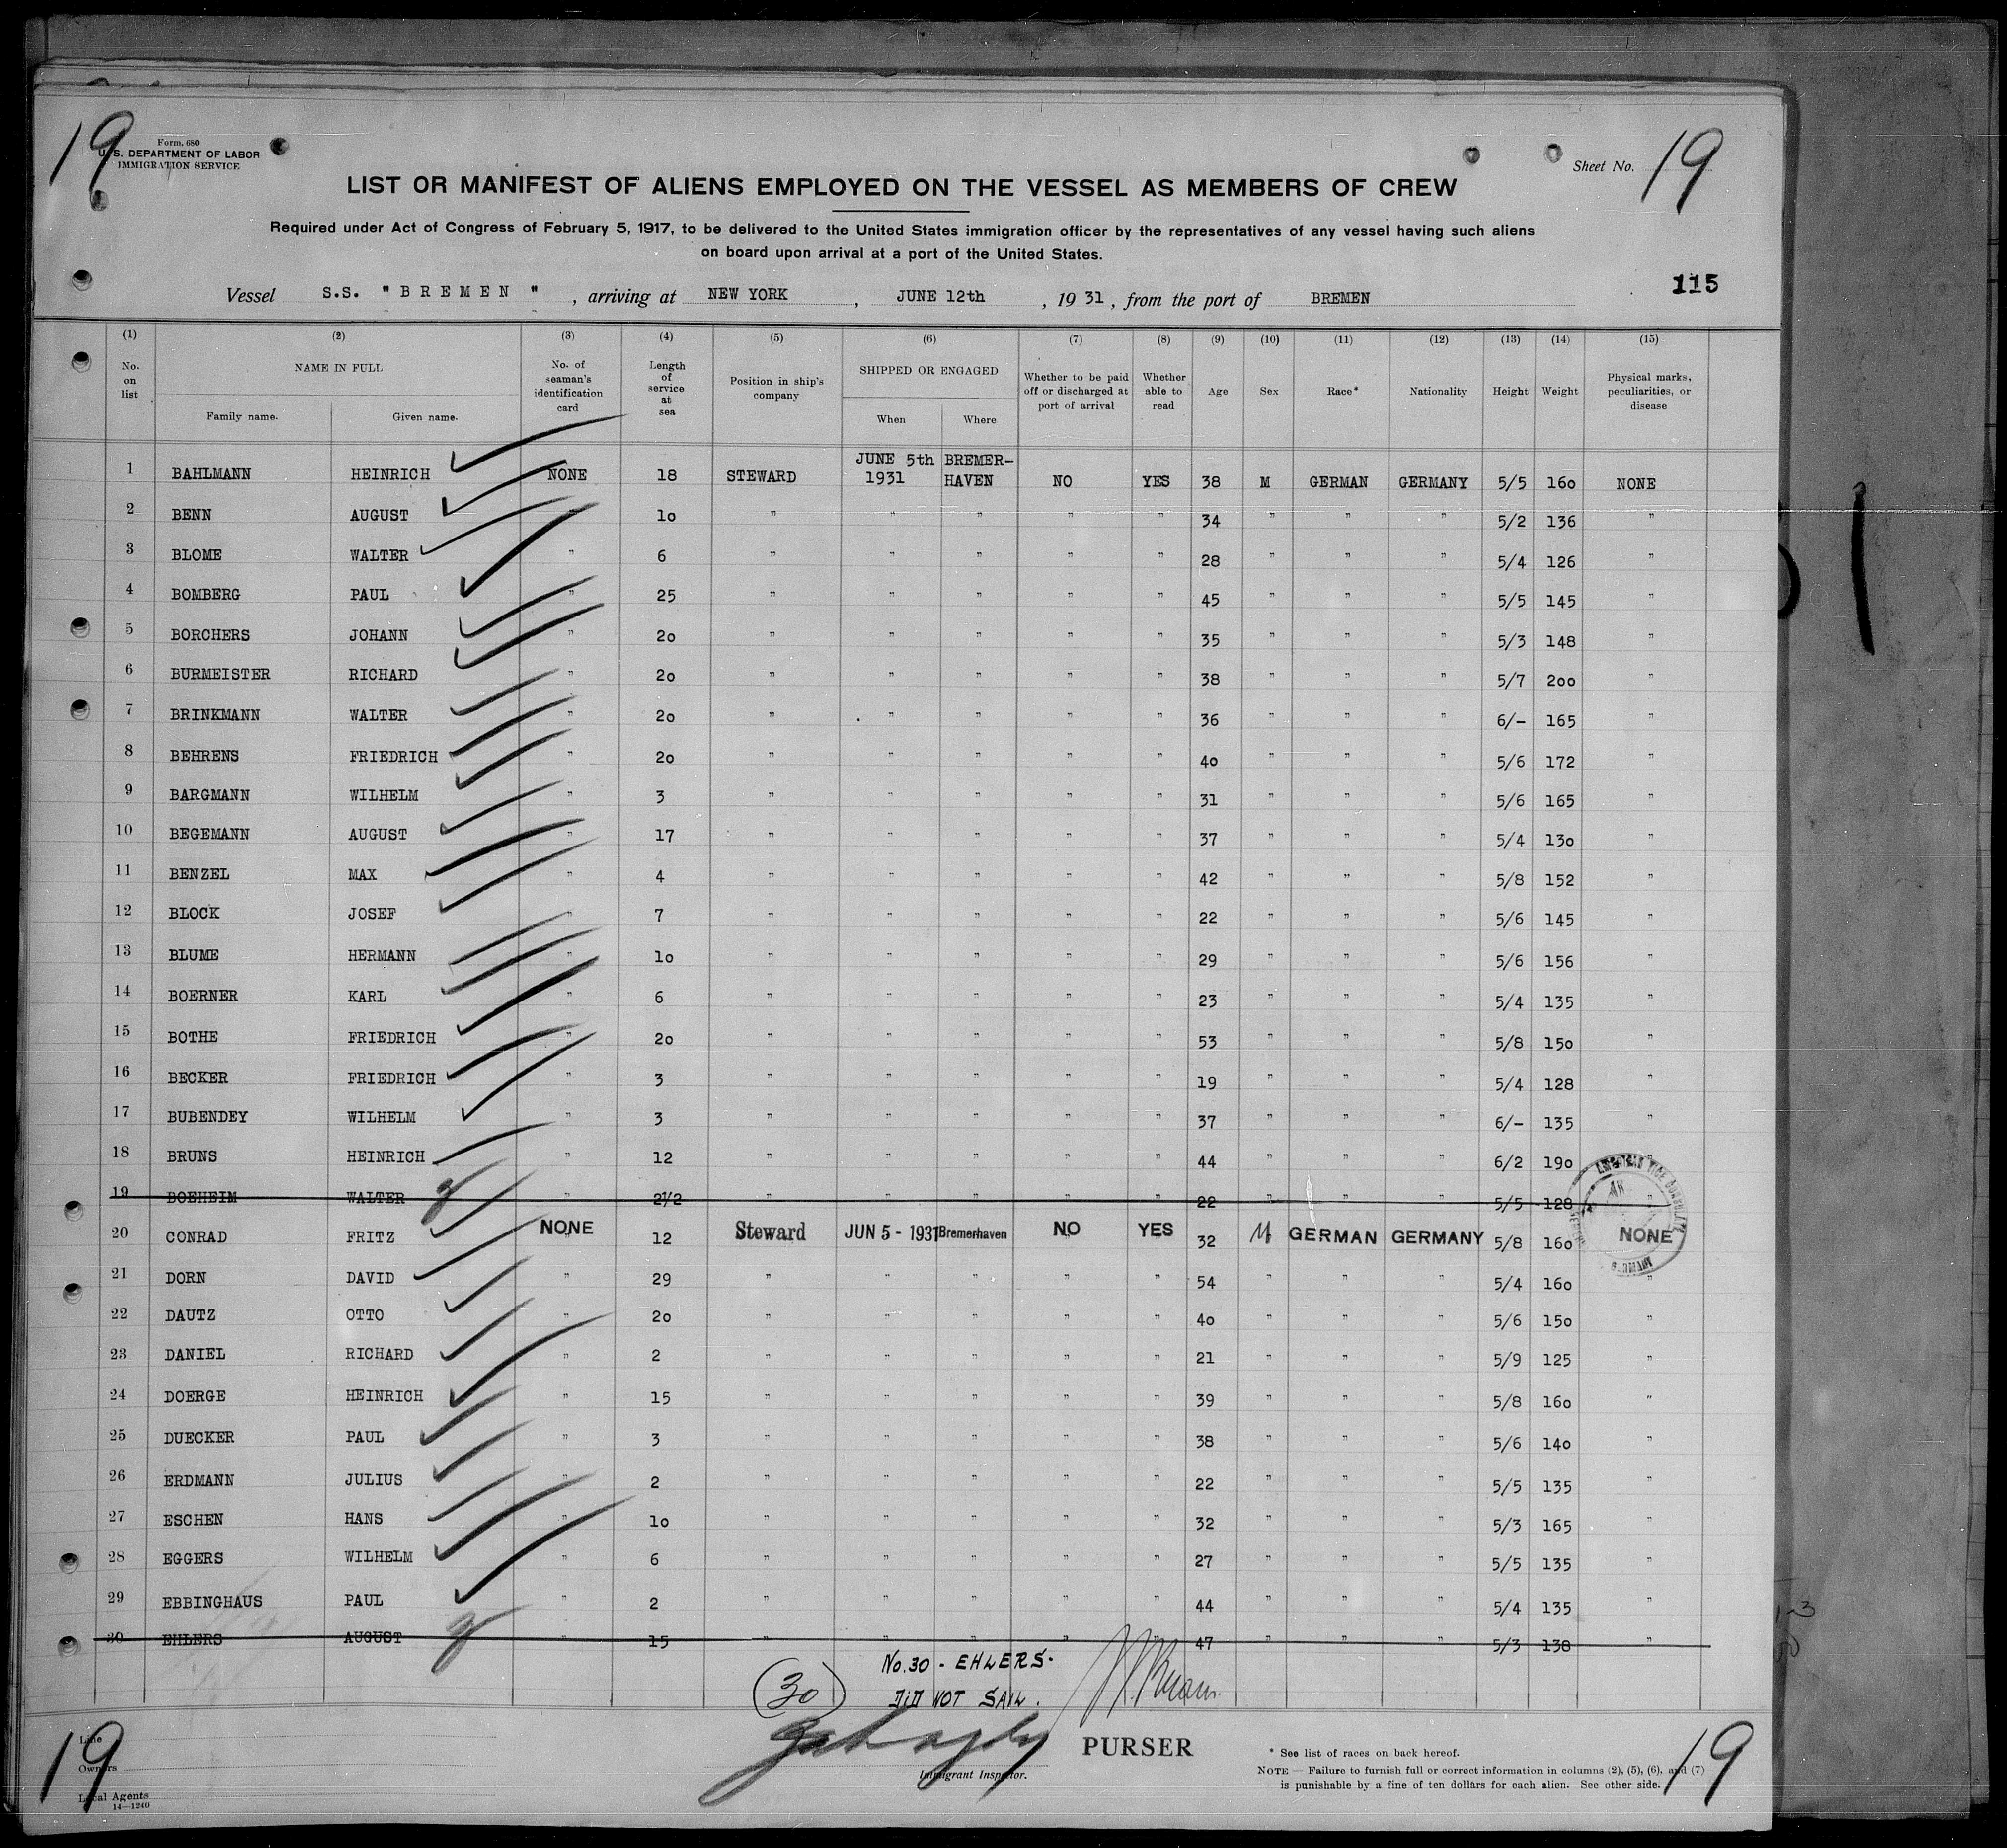 19
Form. 680
U. S. DEPARTMENT OF LABOR
IMMIGRATION SERVICE
Sheet No. 19
LIST OR MANIFEST OF ALIENS EMPLOYED ON THE VESSEL AS MEMBERS OF CREW
Required under Act of Congress of February 5, 1917, to be delivered to the United States immigration officer by the representatives of any vessel having such aliens
on board upon arrival at a port of the United States.
115
Vessel S.S. "BREMEN", arriving at NEW YORK, JUNE 12th, 1931, from the port of BREMEN
(1) (2) (3) (4) (5) (6) (7) (8) (9) (10) (11) (12) (13) (14) (15)
No. on list NAME IN FULL Family name. Given name. No. of seaman's identification card Length of service at sea Position in ship's company SHIPPED OR ENGAGED When Where Whether to be paid off or discharged at port of arrival Whether able to read Age Sex Race* Nationality Height Weight Physical marks, peculiarities, or disease
1 BAHLMANN HEINRICH NONE 18 STEWARD JUNE 5th 1931 BREMER-HAVEN NO YES 38 M GERMAN GERMANY 5/5 160 NONE
2 BENN AUGUST " 10 " " " " " 34 " " " 5/2 136 "
3 BLOME WALTER " 6 " " " " " 28 " " " 5/4 126 "
4 BOMBERG PAUL " 25 " " " " " 45 " " " 5/5 145 "
5 BORCHERS JOHANN " 20 " " " " " 35 " " " 5/3 148 "
6 BURMEISTER RICHARD " 20 " " " " " 38 " " " 5/7 200 "
7 BRINKMANN WALTER " 20 " " " " " 36 " " " 6/- 165 "
8 BEHRENS FRIEDRICH " 20 " " " " " 40 " " " 5/6 172 "
9 BARGMANN WILHELM " 3 " " " " " 31 " " " 5/6 165 "
10 BEGEMANN AUGUST " 17 " " " " " 37 " " " 5/4 130 "
11 BENZEL MAX " 4 " " " " " 42 " " " 5/8 152 "
12 BLOCK JOSEF " 7 " " " " " 22 " " " 5/6 145 "
13 BLUME HERMANN " 10 " " " " " 29 " " " 5/6 156 "
14 BOERNER KARL " 6 " " " " " 23 " " " 5/4 135 "
15 BOTHE FRIEDRICH " 20 " " " " " 53 " " " 5/8 150 "
16 BECKER FRIEDRICH " 3 " " " " " 19 " " " 5/4 128 "
17 BUBENDEY WILHELM " 3 " " " " " 37 " " " 6/- 135 "
18 BRUNS HEINRICH " 12 " " " " " 44 " " " 6/2 190 "
19 BOEHEIM WALTER " 2 1/2 " " " " " 22 " " " 5/5 128 "
20 CONRAD FRITZ NONE 12 Steward JUN 5 - 1931 Bremerhaven NO YES 32 M GERMAN GERMANY 5/8 160 NONE
21 DORN DAVID " 29 " " " " " 54 " " " 5/4 160 "
22 DAUTZ OTTO " 20 " " " " " 40 " " " 5/6 150 "
23 DANIEL RICHARD " 2 " " " " " 21 " " " 5/9 125 "
24 DOERGE HEINRICH " 15 " " " " " 39 " " " 5/8 160 "
25 DUECKER PAUL " 3 " " " " " 38 " " " 5/6 140 "
26 ERDMANN JULIUS " 2 " " " " " 22 " " " 5/5 135 "
27 ESCHEN HANS " 10 " " " " " 32 " " " 5/3 165 "
28 EGGERS WILHELM " 6 " " " " " 27 " " " 5/5 135 "
29 EBBINGHAUS PAUL " 2 " " " " " 44 " " " 5/4 135 "
30 EHLERS AUGUST " 15 " " " " " 47 " " " 5/3 138 "
(30) No. 30 - EHLERS -
DID NOT SAIL.
PURSER
Immigrant Inspector.
19
Line
Owners
Local Agents
14—1240
* See list of races on back hereof.
NOTE — Failure to furnish full or correct information in columns (2), (5), (6), and (7)
is punishable by a fine of ten dollars for each alien. See other side.
19